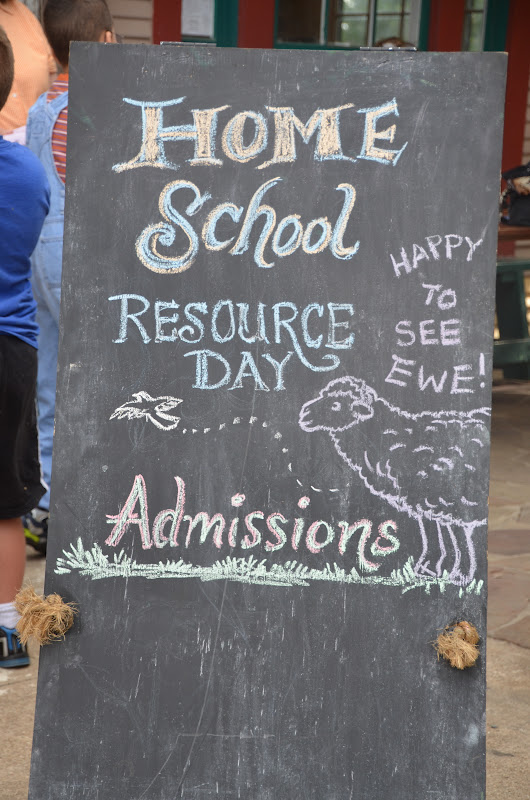 HOME
School
RESOURCE
DAY
HAPPY
TO
SEE
EWE!
Admissions